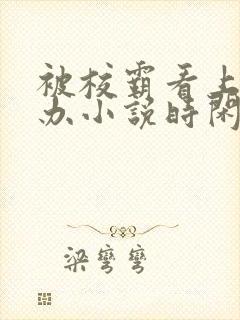 被校霸看上
办小說時閑
梁彎彎